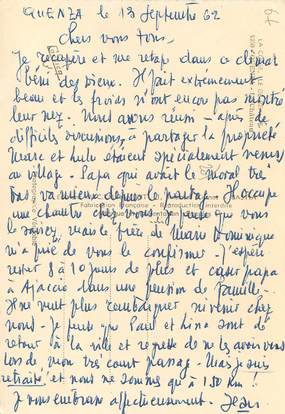 QUENZA le 13 Septembre 62
Chers vous tous.
Je récupère et me retap dans ce climat
béni des dieux. Il fait extrêmement
beau et les froids n'ont encore pas montré
leur nez. Nous avons réussi - après de
difficiles discussions, à partager la propriété
Marc et Lulu étaient spécialement venus
au village. Papa qui avait le moral très
bas va mieux depuis le partage. Il occupe
une chambre chez vous. Je pense que vous
le savez, mais le frère de Marie Dominique
m'a prié de vous le confirmer. J'espère
rester 8 à 10 jours de plus et caser papa
à Ajaccio dans une pension de famille.
Il ne veut plus ni venir chez
nous. Je pense que Paul et Lina sont de
retour à la ville et regrette de ne les avoir vus
lors de mon très court passage. Mais je suis
retraité, et nous ne sommes qu'à 150 km !
Je vous embrasse affectueusement. Jean
Fabrication Française - Reproduction Interdite